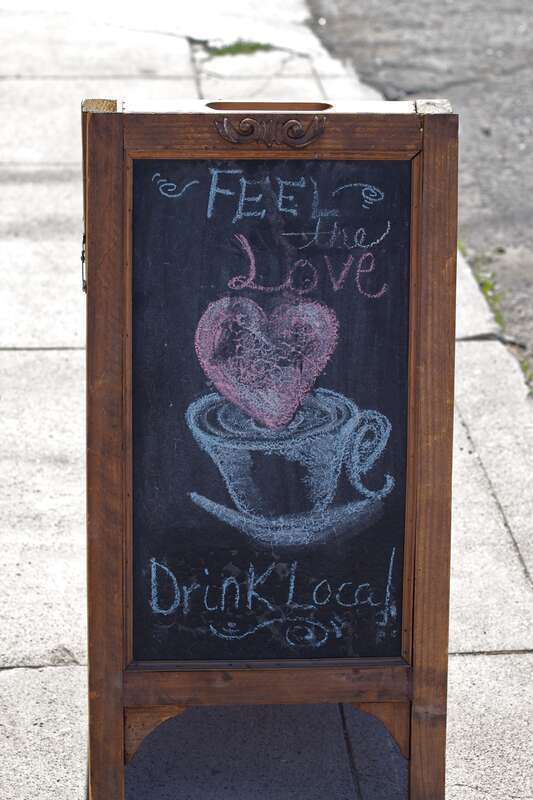 FEEL
the
Love
Drink Local